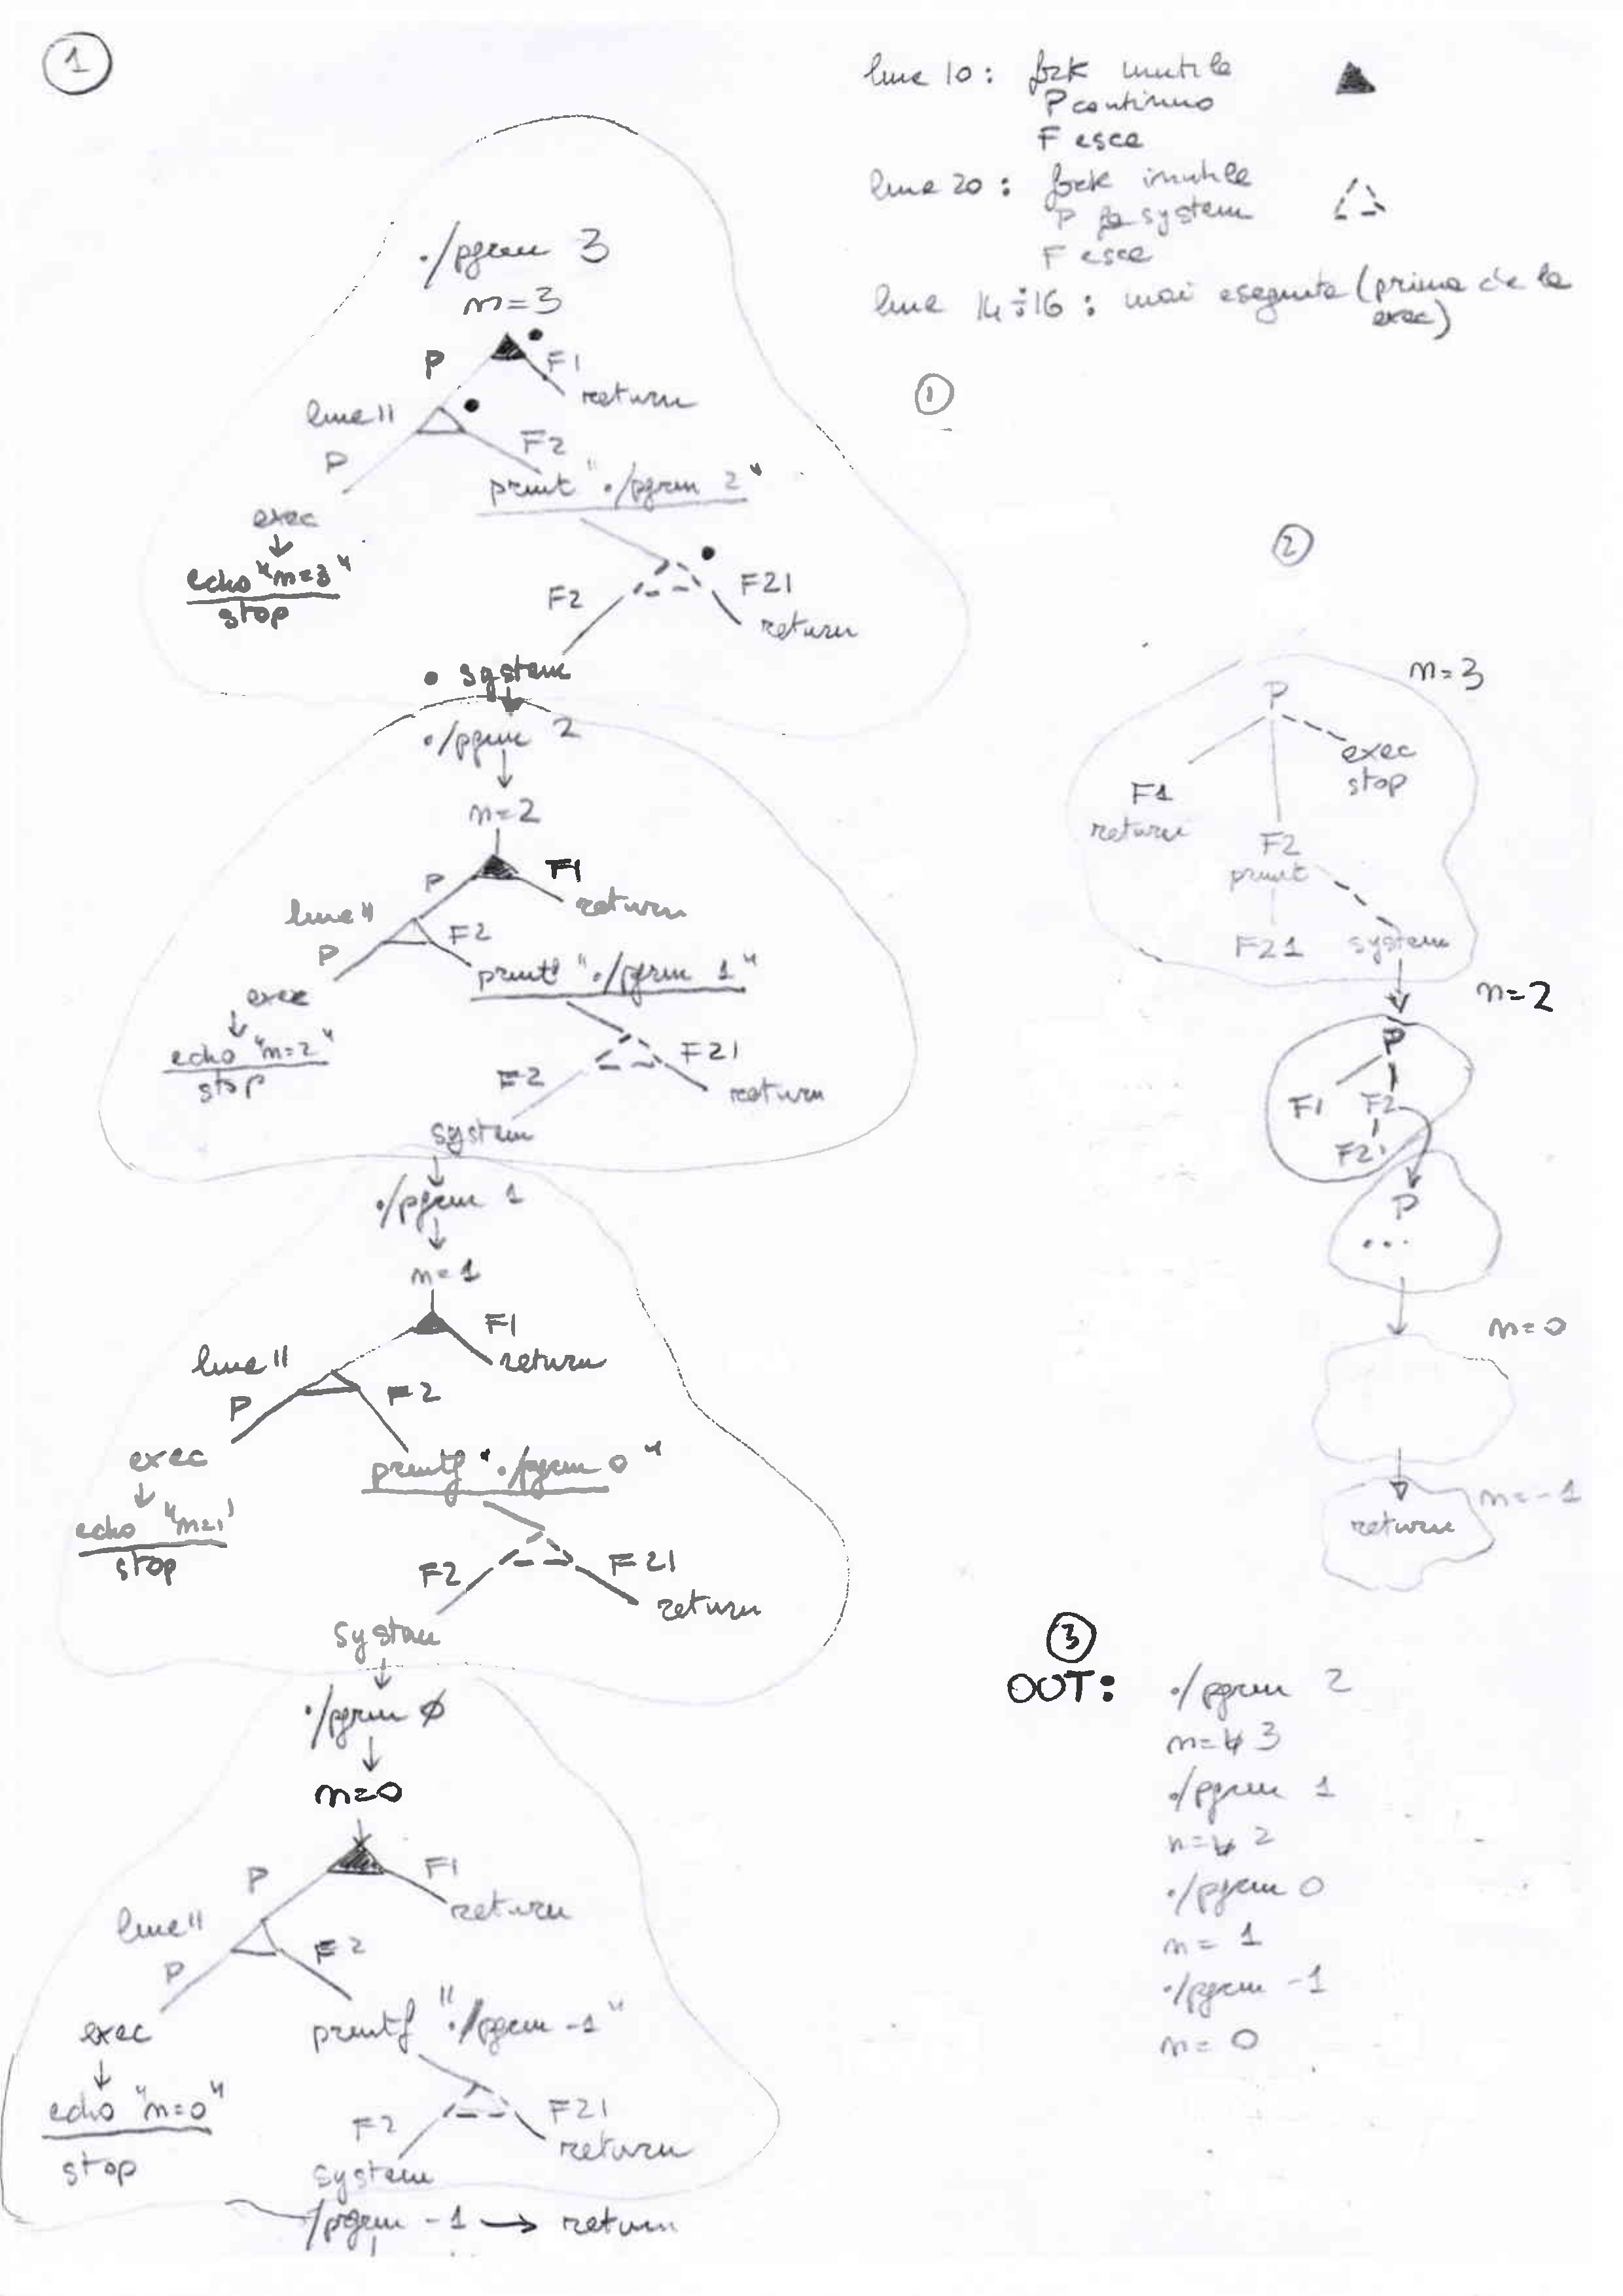 1
line 10: fork inutile
P continua
F esce
line 20: fork inutile
P fa system
F esce
line 14÷16: mai eseguite (prima c'è la
exec)
1
./pgrm 3
n=3
P F1
return
line 11
P F2
print "./pgrm 2"
exec
echo "n=3"
stop
F2 F21
return
system
./pgrm 2
n=2
P F1
return
line 11
P F2
printf "./pgrm 1"
exec
echo "n=2"
stop
F2 F21
return
system
./pgrm 1
n=1
F1
return
line 11
P F2
printf "./pgrm 0"
exec
echo "n=1"
stop
F2 F21
return
system
./pgrm Ø
n=0
P F1
return
line 11
P F2
printf "./pgrm -1"
exec
echo "n=0"
stop
F2 F21
return
system
./pgrm -1 → return
2
n=3
P
exec
stop
F1
return
F2
print
F21 system
n=2
P
F1 F2
F21
P
...
n=0
n=-1
return
3
OUT:
./pgrm 2
n= 3
./pgrm 1
n= 2
./pgrm 0
n= 1
./pgrm -1
n= 0